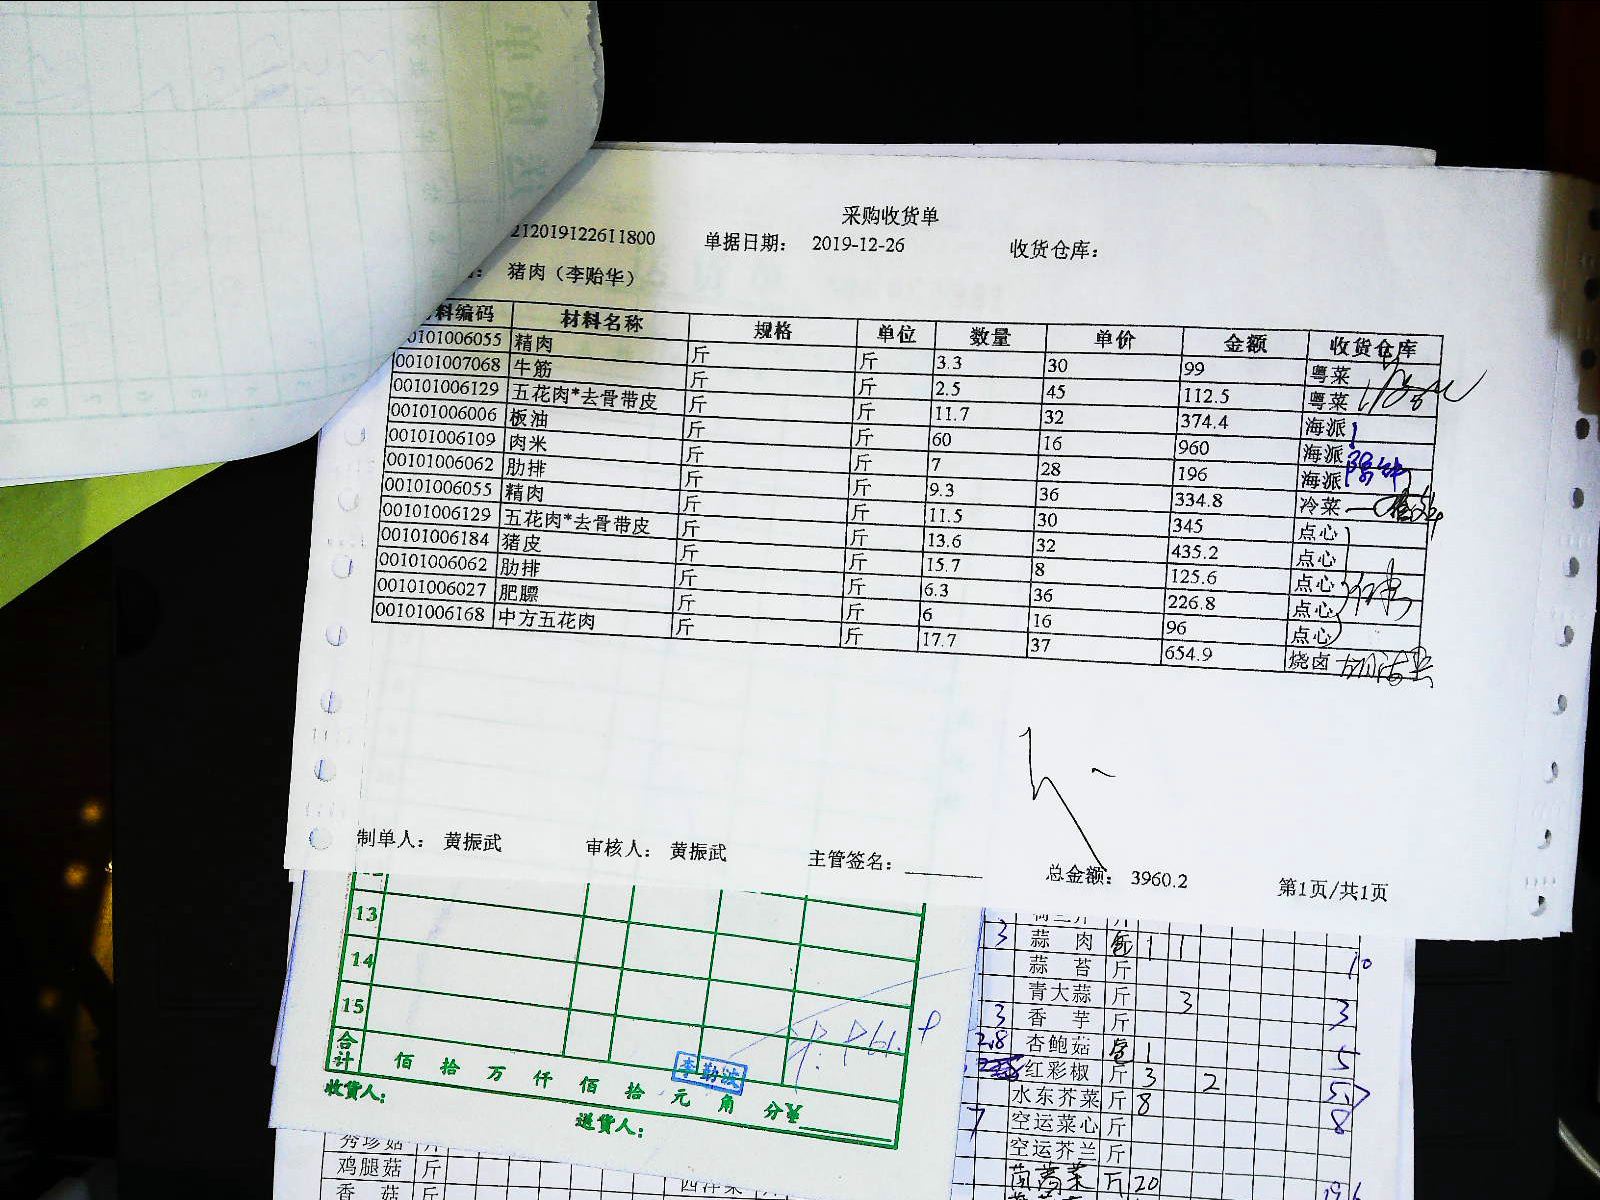 采购收货单
212019122611800 单据日期： 2019-12-26 收货仓库：
： 猪肉（李贻华）
料编码 材料名称 规格 单位 数量 单价 金额 收货仓库
0101006055 精肉 斤 斤 3.3 30 99 粤菜
00101007068 牛筋 斤 斤 2.5 45 112.5 粤菜
00101006129 五花肉*去骨带皮 斤 斤 11.7 32 374.4 海派
00101006006 板油 斤 斤 60 16 960 海派
00101006109 肉米 斤 斤 7 28 196 海派
00101006062 肋排 斤 斤 9.3 36 334.8 冷菜
00101006055 精肉 斤 斤 11.5 30 345 点心
00101006129 五花肉*去骨带皮 斤 斤 13.6 32 435.2 点心
00101006184 猪皮 斤 斤 15.7 8 125.6 点心
00101006062 肋排 斤 斤 6.3 36 226.8 点心
00101006027 肥膘 斤 斤 6 16 96 点心
00101006168 中方五花肉 斤 斤 17.7 37 654.9 烧卤
制单人： 黄振武 审核人： 黄振武 主管签名：________ 总金额： 3960.2 第1页/共1页
13
14
15
合计 佰 拾 万 仟 佰 拾 元 角 分¥
李勤波
收货人： 送货人：
3 蒜肉 1 1 10
蒜苔 斤
青大蒜 斤 3 3
3 香芋 斤
2.8 杏鲍菇 1 5
红彩椒 斤 3 2 5.7
水东芥菜 斤 8 8
7 空运菜心 斤
空运芥兰 斤
茼蒿菜 斤 20
秀珍菇 斤
鸡腿菇 斤
香菇 斤
西洋菜